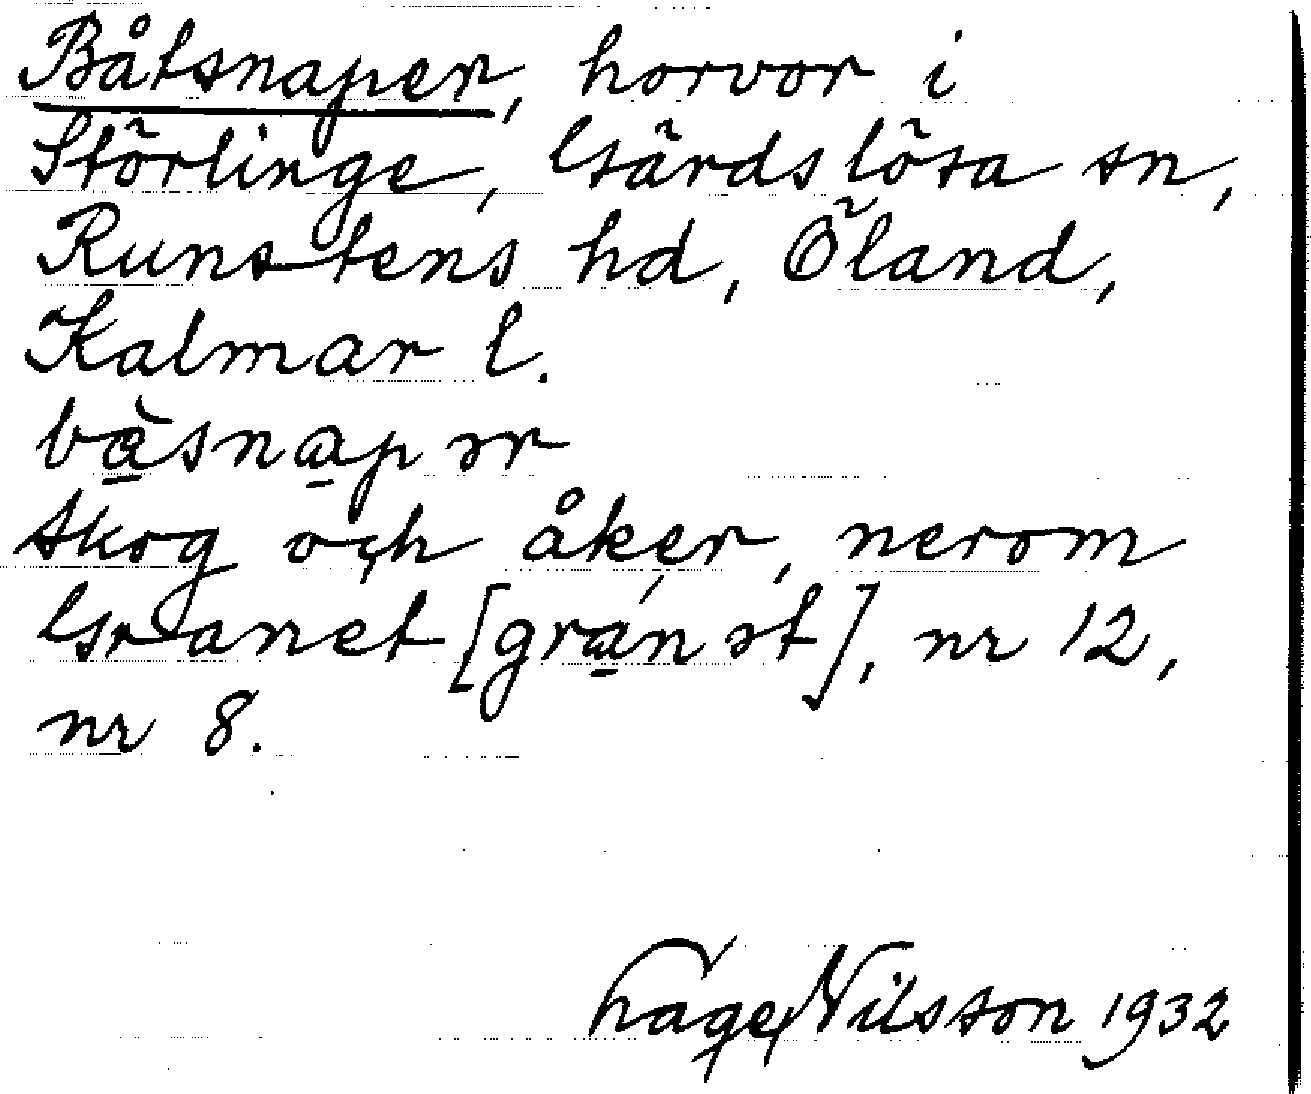 Båtsnapen, horvor i
Störlinge, Gärdslösa sn,
Runstens hd, Öland,
Kalmar l.
bàsnapər
skog och åker, nerom
Granet [gránət], nr 12,
nr 8.
Tage Nilsson 1932